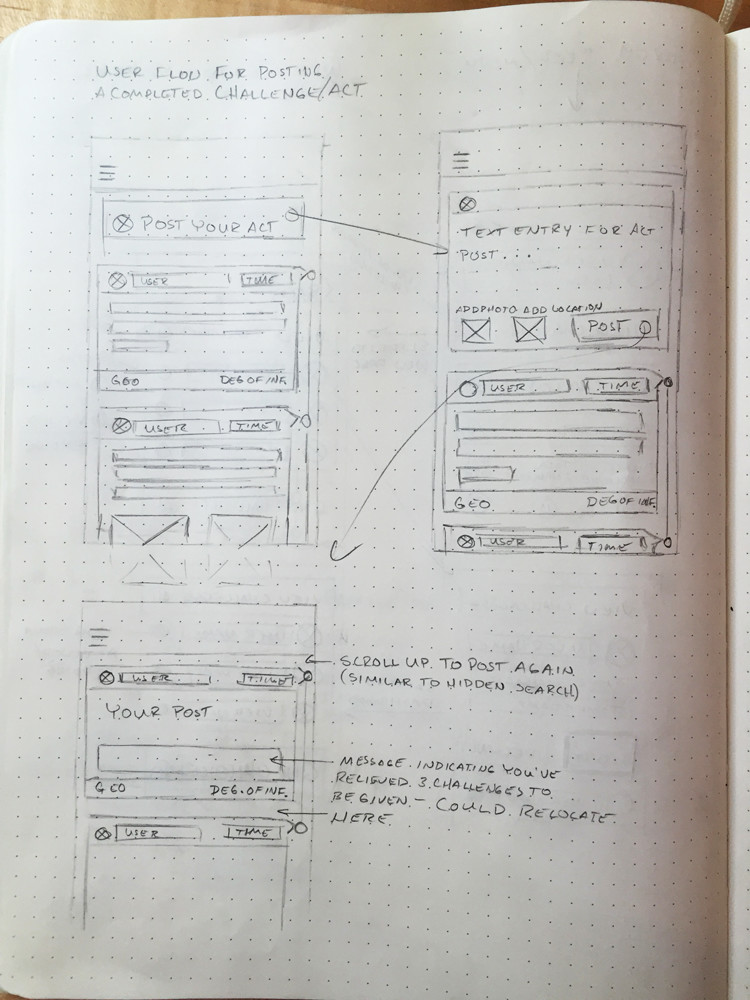 USER FLOW FOR POSTING
A COMPLETED CHALLENGE/ACT
POST YOUR ACT
USER TIME
GEO DEG OF INF.
USER TIME
TEXT ENTRY FOR ACT
POST...
ADD PHOTO ADD LOCATION
POST
USER TIME
GEO DEG OF INF.
USER TIME
USER TIME
YOUR POST
GEO DEG. OF INF.
USER TIME
SCROLL UP TO POST AGAIN
(SIMILAR TO HIDDEN SEARCH)
MESSAGE INDICATING YOU'VE
RECIEVED 3 CHALLENGES TO
BE GIVEN – COULD RELOCATE
HERE